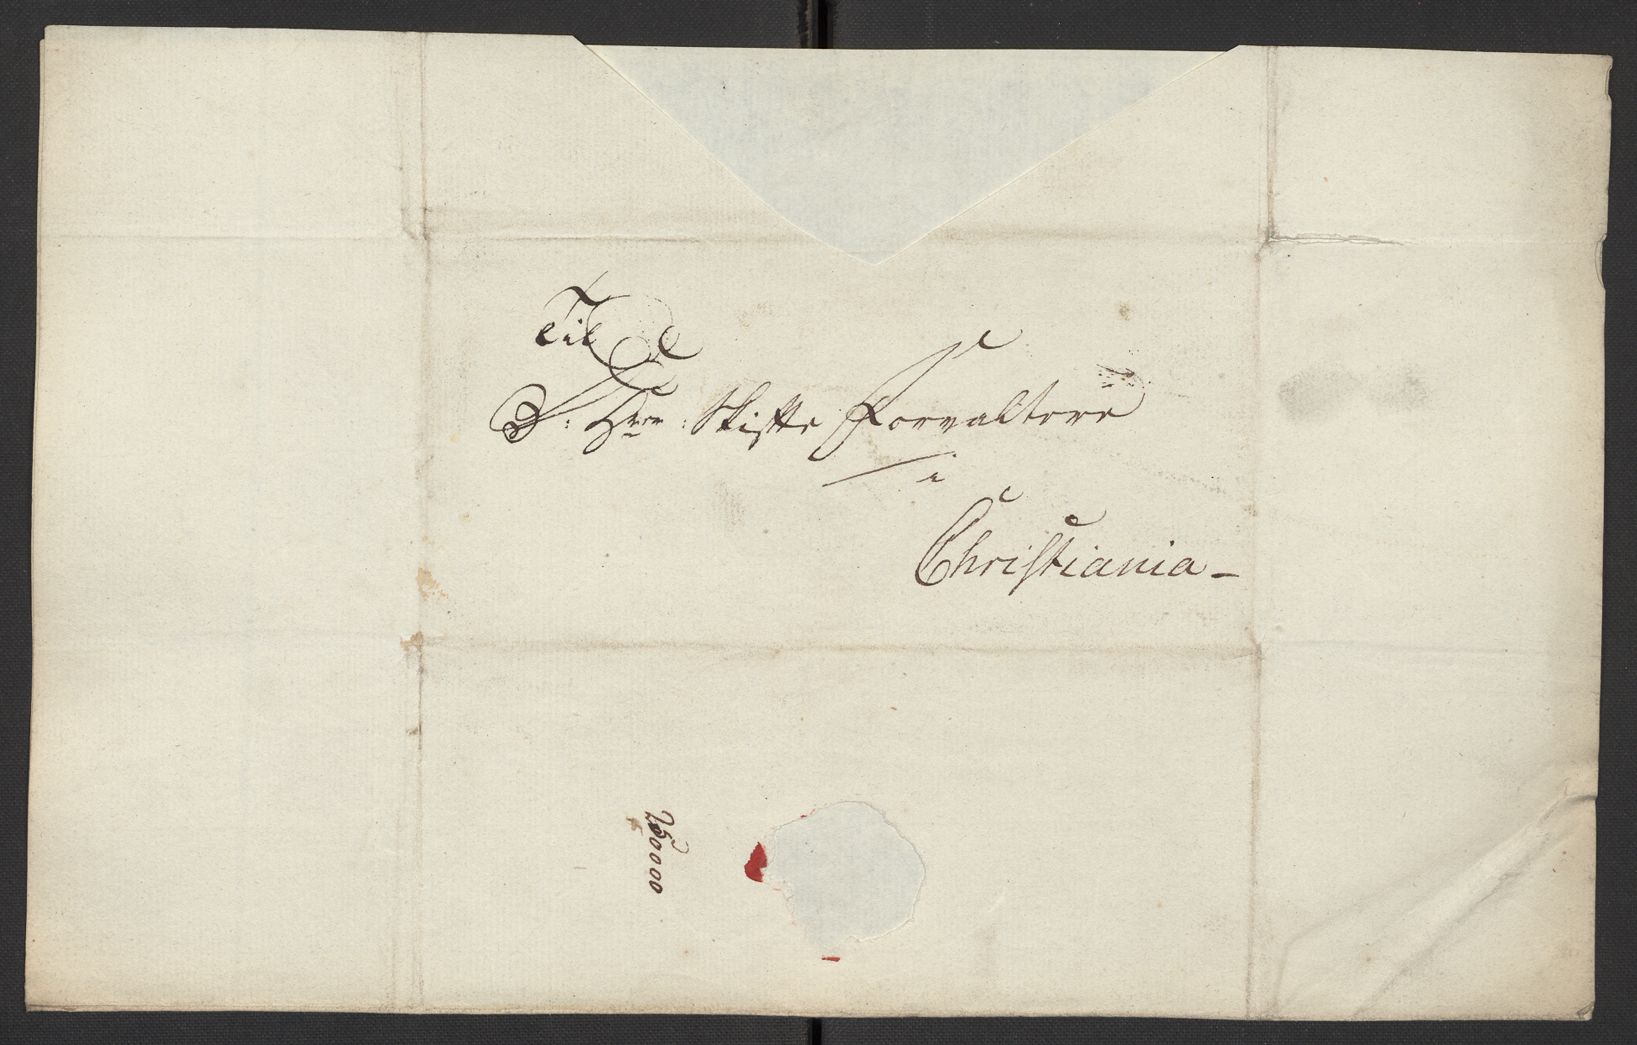 Til
S: Hrr: Skifte Forvaltere
i
Christiania -
260000